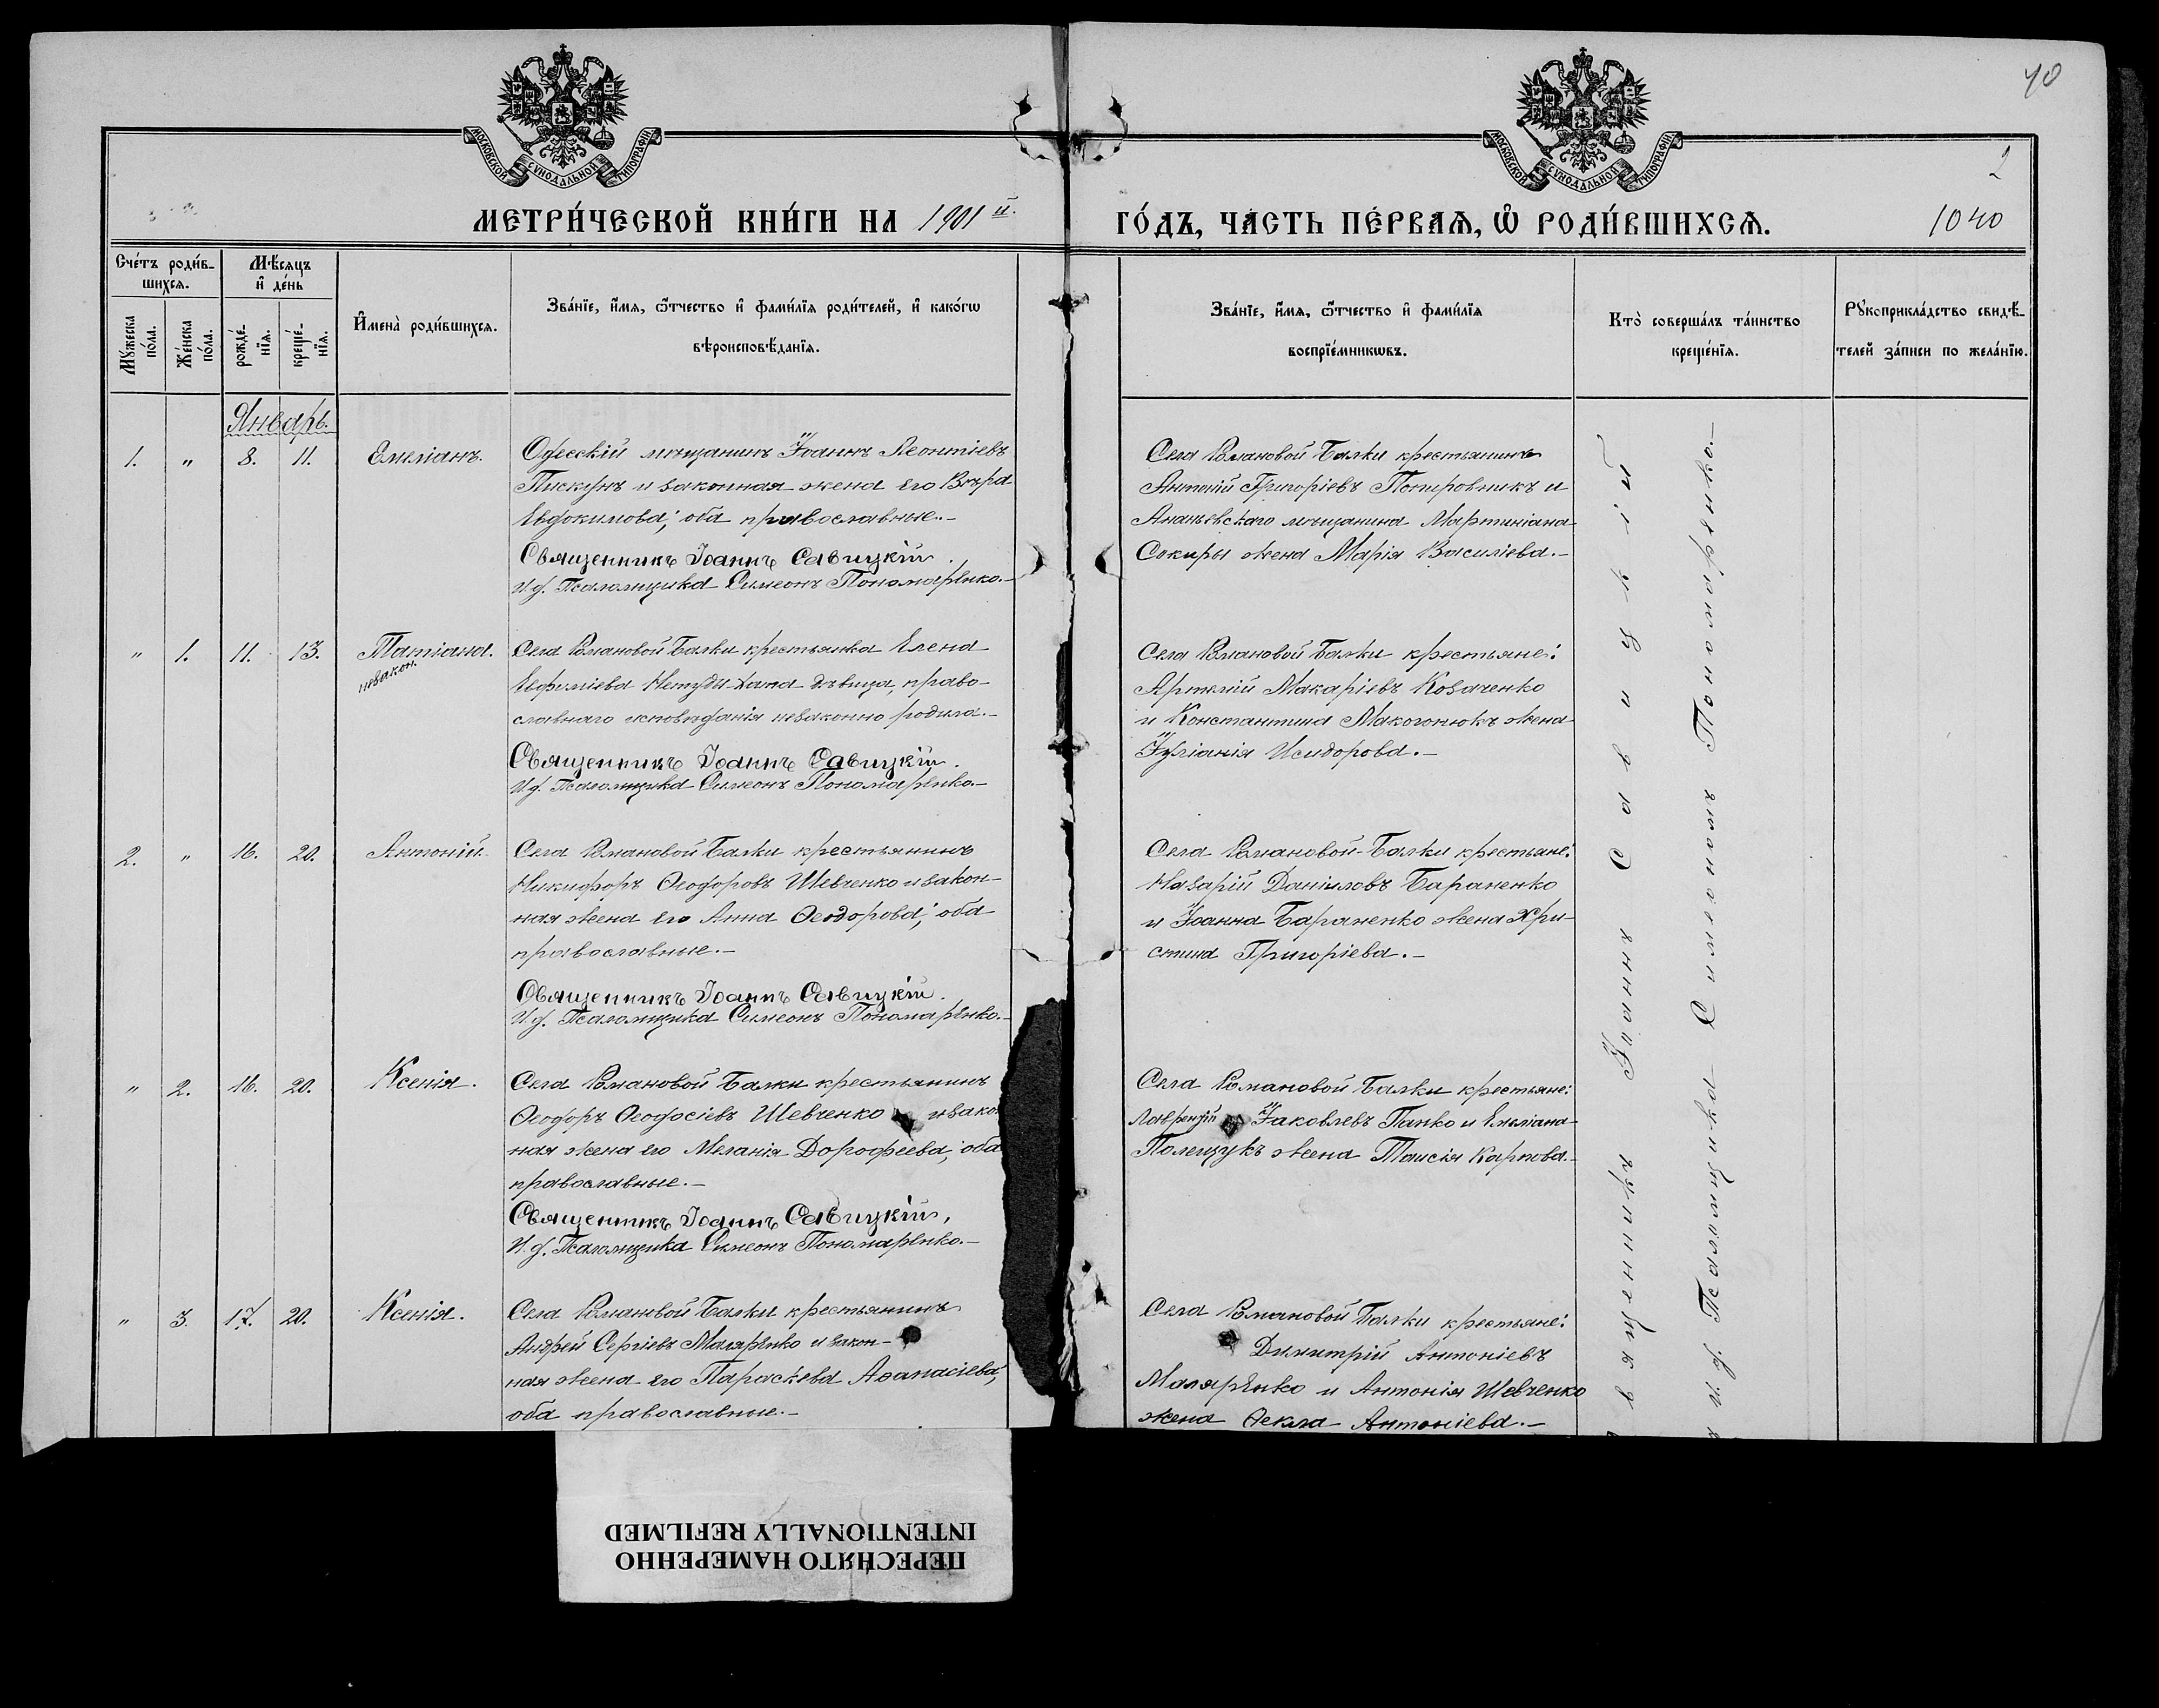 40
МОСКОВСКОЙ СѴНОДАЛЬНОЙ ТИПОГРАФІИ
МОСКОВСКОЙ СѴНОДАЛЬНОЙ ТИПОГРАФІИ
2
МЕТРИ́ЧЕСКОЙ КНИ́ГИ НА 1901й.
ГО́ДЪ, ЧА́СТЬ ПЕ́РВАѦ, Ѡ҆ РОДИ́ВШИХСѦ.
1040
Сче́тъ роди́в-
шихсѧ.
Мѣ́сяцъ
и҆ де́нь
Мꙋ́жеска
по́ла.
Же́нска
по́ла.
рожде́-
нїѧ.
креще́-
нїѧ.
И҆мена̀ роди́вшихсѧ.
Зва́нїе, и҆́мѧ, ѻ҆́тчество и҆ фами́лїѧ роди́телей, и҆ како́гѡ
вѣроисповѣ́данїѧ.
Зва́нїе, и҆́мѧ, ѻ҆́тчество и҆ фами́лїѧ
воспрїе́мникѡвъ.
Кто̀ соверша́лъ та́инство
креще́нїѧ.
Рꙋкоприкла́дство свидѣ́-
телей за́писи по жела́нїю.
Январь.
1. " 8. 11. Емеліанъ.
Одесскій мѣщанинъ Іоаннъ Леонтіевъ
Пискунъ и законная жена его Вѣра
Евдокимова; оба православные.-
Священникъ Іоаннъ Савицкій.
И. д. Псаломщика Симеонъ Пономаренко.-
Села Романовой Балки крестьянинъ
Антоній Григоріевъ и
Ананьевскаго мѣщанина Мартиніана
Сокиры жена Марія Василіева.-
" 1. 11. 13. Татіана.
незакон.
Села Романовой Балки крестьянка Елена
Евфиміева дѣвица, право-
славнаго исповѣданія незаконно родила.-
Священникъ Іоаннъ Савицкій.
И. д. Псаломщика Симеонъ Пономаренко.-
Села Романовой Балки крестьяне:
Артемій Макаріевъ Козаченко
и Константина Макогонюкъ жена
Іуліанія Исидорова.-
2. " 16. 20. Антоній.
Села Романовой Балки крестьянинъ
Никифоръ Ѳеодоровъ Шевченко и закон-
ная жена его Анна Ѳеодорова; оба
православные.-
Священникъ Іоаннъ Савицкій.
И. д. Псаломщика Симеонъ Пономаренко.-
Села Романовой-Балки крестьяне:
Назарій Даніиловъ Бараненко
и Іоанна Бараненко жена Хри-
стина Григоріева.-
" 2. 16. 20. Ксенія.
Села Романовой Балки крестьянинъ
Ѳеодоръ Ѳеодосіевъ Шевченко и зако
ная жена его Меланія Дороѳеева; оба
православные.-
Священникъ Іоаннъ Савицкій,
И. д. Псаломщика Симеонъ Пономаренко.-
Села Романовой Балки крестьяне:
Лаврентій Іаковлевъ Панко и Емеліана
Полещукъ жена Таисія Карпова.-
" 3. 17. 20. Ксенія.
Села Романовой Балки крестьянинъ
Андрей Сергіевъ Маляренко и закон-
ная жена его Параскева Аѳанасіева;
оба православные.-
Села Романовой Балки крестьяне:
Димитрій Антоніевъ
Маляренко и Антонія Шевченко
жена Ѳекла Антоніева.-
вященникъ Іоаннъ Савицкій
и. д. Псаломщика Симеономъ Пономаренко.-
ПЕРЕСНЯТО НАМЕРЕННО
INTENTIONALLY REFILMED